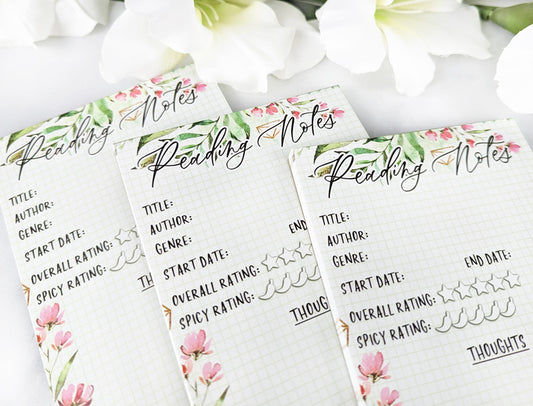 Reading Notes
TITLE:
AUTHOR:
GENRE:
START DATE:
OVERALL RATING:
SPICY RATING:
Reading Notes
TITLE:
AUTHOR:
GENRE:
START DATE:
END
OVERALL RATING:
SPICY RATING:
THOUG
Reading Notes
TITLE:
AUTHOR:
GENRE:
START DATE:
END DATE:
OVERALL RATING:
SPICY RATING:
THOUGHTS